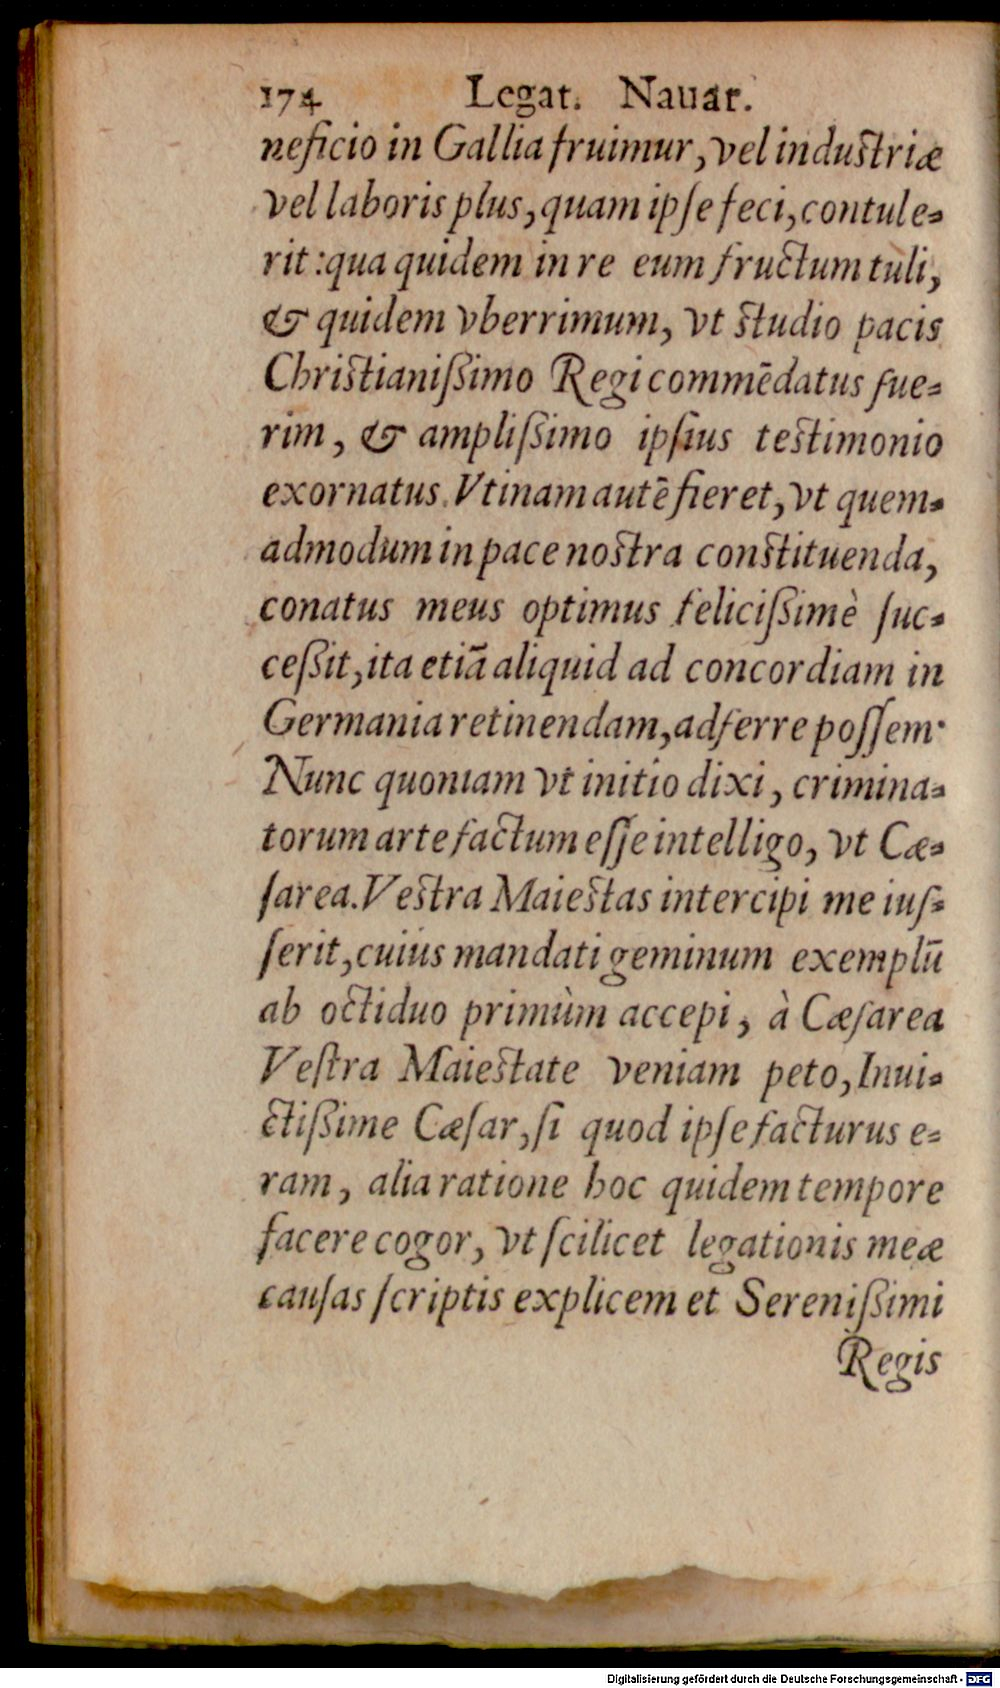 174 Legat. Nauar.
neficio in Gallia fruimur, vel industriæ
vel laboris plus, quam ipſe feci, contule-
rit: qua quidem in re eum fructum tuli,
& quidem vberrimum, vt studio pacis
Christianiſsimo Regi commēdatus fue-
rim, & ampliſsimo ipſius testimonio
exornatus. Vtinam autē fieret, vt quem-
admodum in pace nostra constituenda,
conatus meus optimus feliciſsimè ſuc-
ceſsit, ita etiā aliquid ad concordiam in
Germania retinendam, adferre poſſem.
Nunc quoniam vt initio dixi, crimina-
torum arte factum eſſe intelligo, vt Cæ-
ſarea. Vestra Maiestas intercipi me iuſ-
ſerit, cuius mandati geminum exemplū
ab octiduo primùm accepi, à Cæſarea
Veſtra Maiestate veniam peto, Inui-
ctiſsime Cæſar, ſi quod ipſe facturus e-
ram, alia ratione hoc quidem tempore
facere cogor, vt ſcilicet legationis meæ
cauſas ſcriptis explicem et Sereniſsimi
Regis
Digitalisierung gefördert durch die Deutsche Forschungsgemeinschaft - DFG